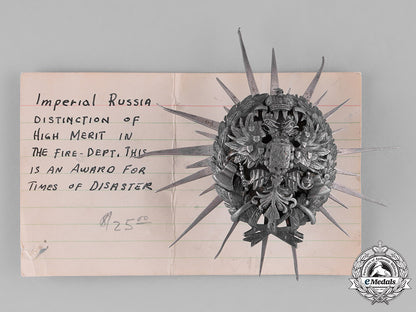 Imperial Russia
DISTINCTION OF
HIGH MERIT IN
THE FIRE-DEPT. THIS
IS AN AWARD FOR
TIMES OF DISASTER
$25.00
eMedals